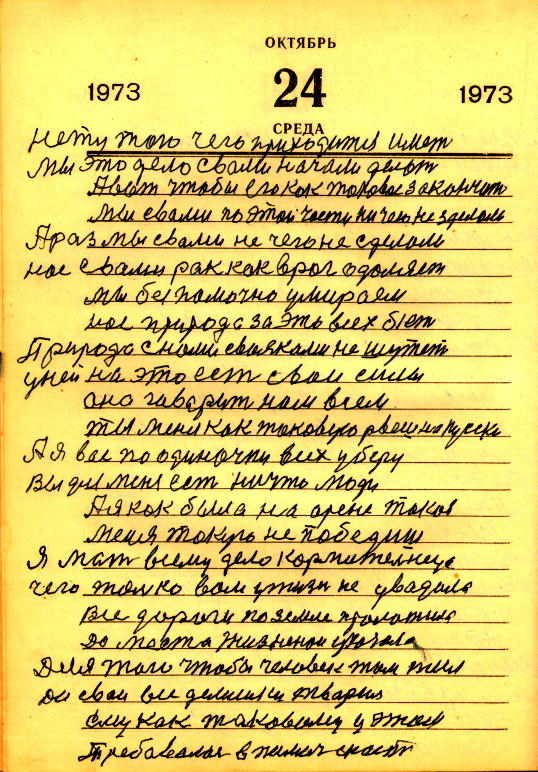 ОКТЯБРЬ
1973 24 1973
СРЕДА
нету того чего приходится имет
мы это дело свами начали делат
А вот чтобы его как таковое закончит
мы свами по этой части ничего не зделали
А раз мы свами не чего не сделали
нас свами рак как враг одоляет
мы беспомочно умираем
нас природа за это всех бьет
Природа снами не шутет
у ней на это ест свои силы
она гаварит нам всем
ты меня как таковую рвеш на куски
А я вас по одиночки всех уберу
Вы для меня ест ничто люди
А я как была на арене такая
меня такую не победиш
Я мат всему дело кормителнеца
чего толко вам не увадила
все дороги по земле
до места жизненои
Для того чтобы человек там жил
да свои все делишки тварил
ему как таковому у этом
требавалас